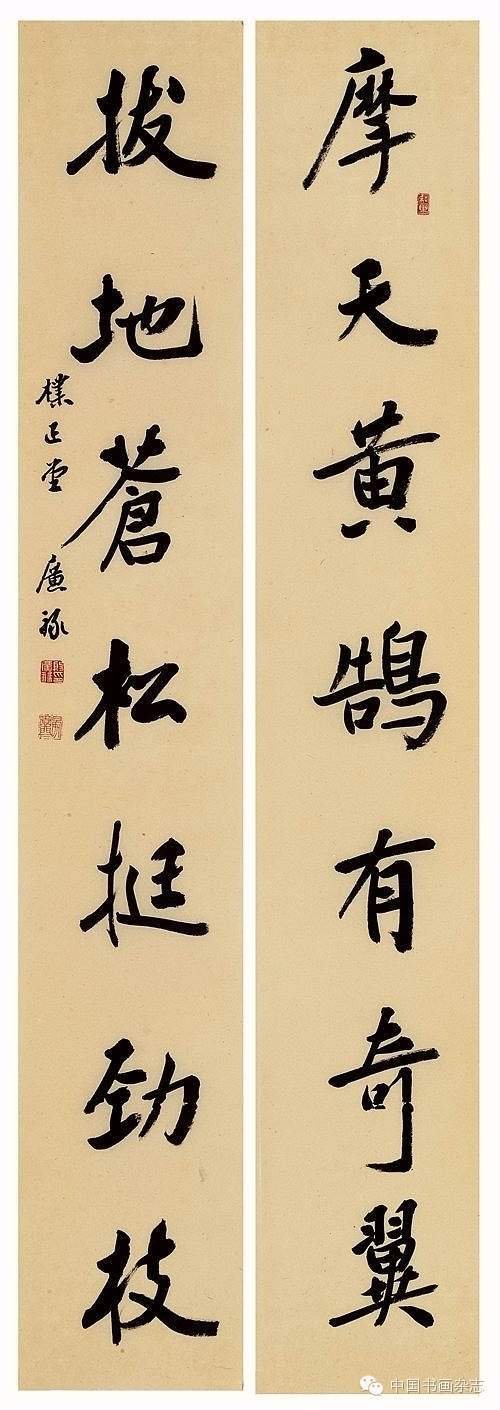 摩天黄鹄有奇翼
拔地蒼松挺劲枝
樸正堂 廣祿
中国书画杂志